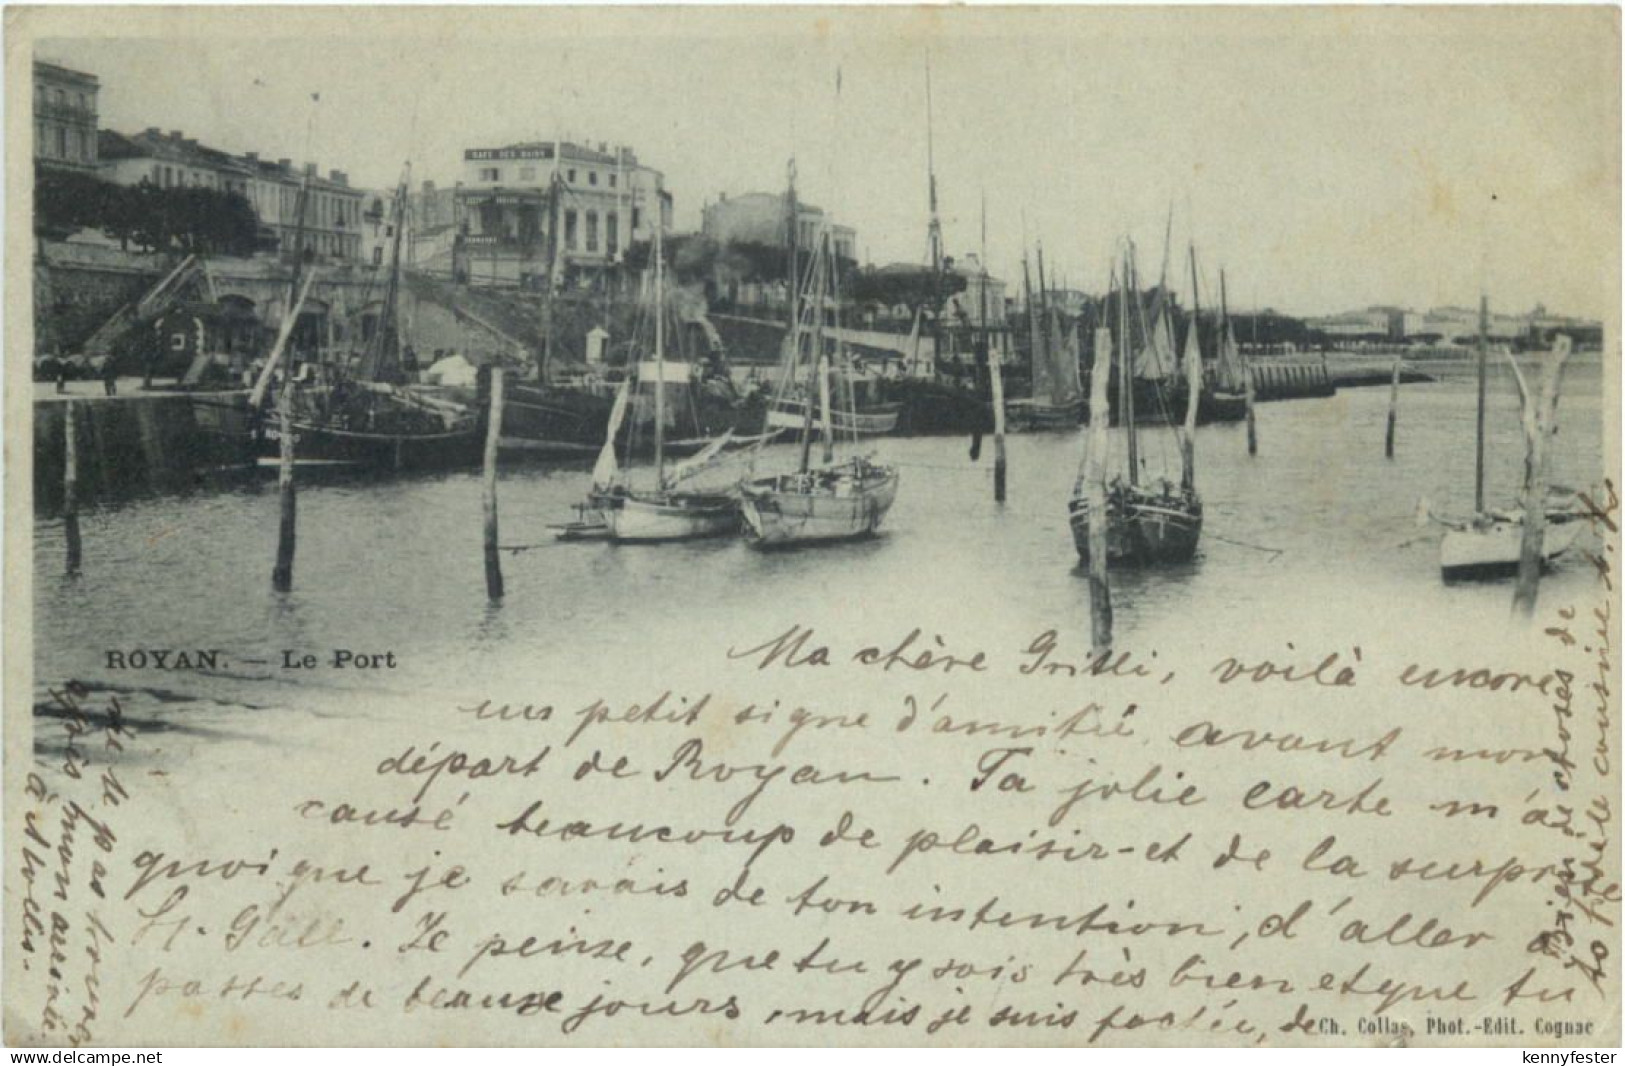 CAFE DES BAINS
ROYAN. — Le Port
Ma chère Gritli, voilà encore
un petit signe d'amitié, avant mon
départ de Royan. Ta jolie carte m'a
causé beaucoup de plaisir et de la surprise
quoique je savais de ton intention, d'aller à
St. Gall. Je pense, que tu y sois très bien et que tu
passes de beaux jours, mais je suis fachée, de
ne te pas trouver
après mon arrivée
à
Bien de choses de
ta fidèle cousine
Ch. Collas, Phot.-Edit. Cognac
www.delcampe.net
kennyfester